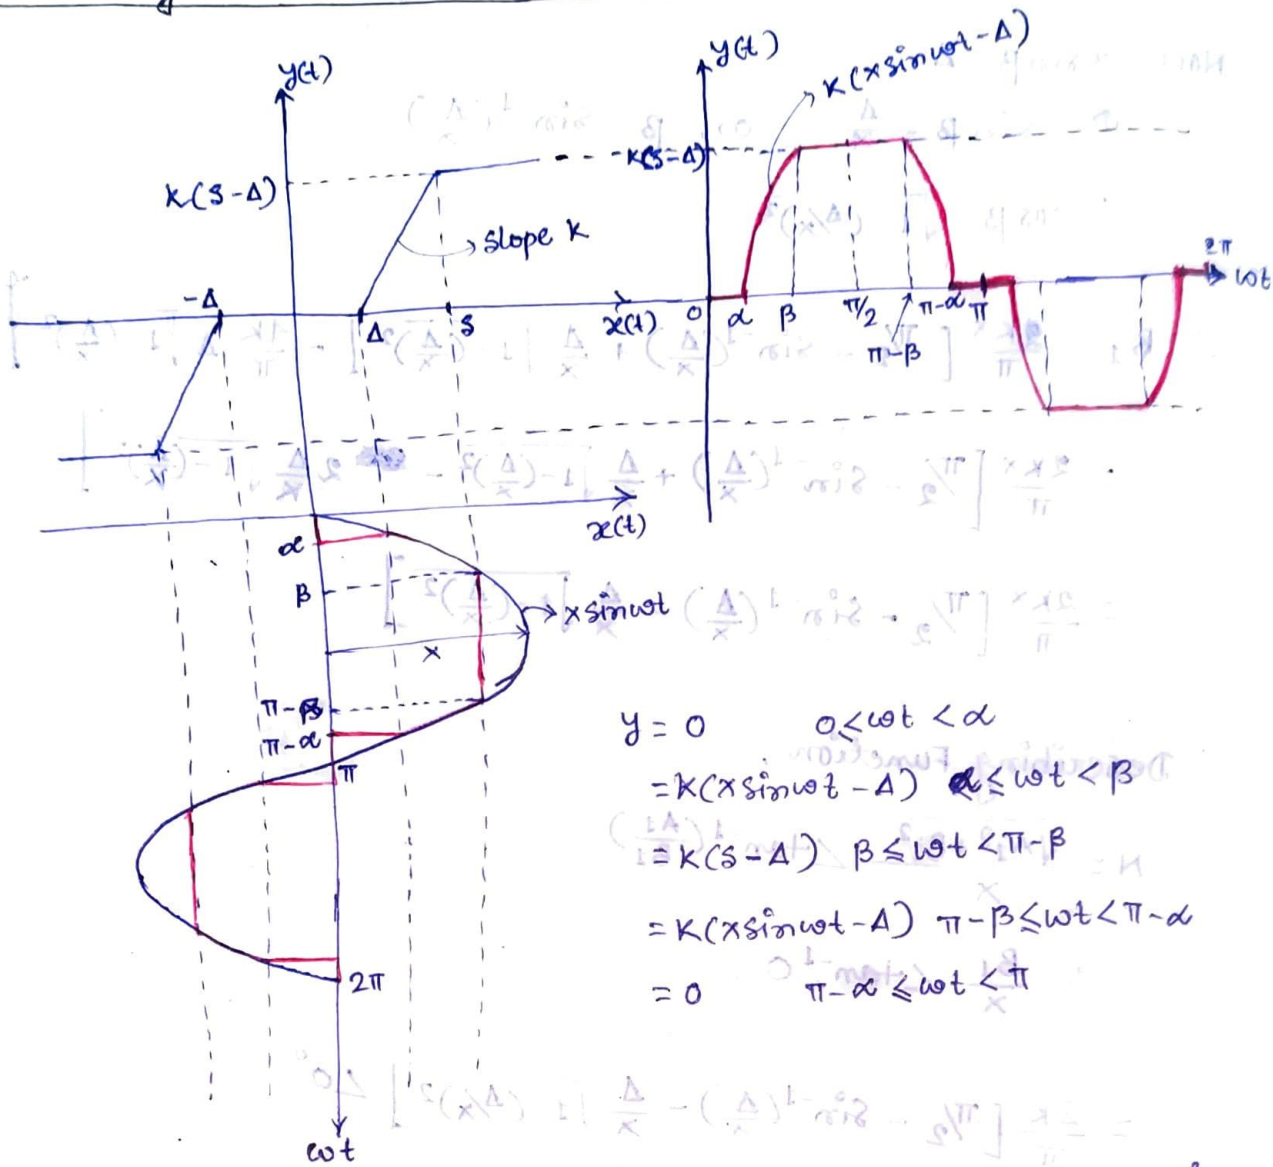 y(t)
K(S-Δ)
slope K
-Δ
Δ
S
x(t)
y(t)
K(x sin ωt - Δ)
K(S-Δ)
0
α
β
π/2
π-β
π-α
π
2π
ωt
x(t)
α
β
x sin ωt
x
π-β
π-α
π
2π
ωt
y = 0 0≤ωt <α
= K(x sin ωt - Δ) α≤ωt <β
= K(S-Δ) β≤ωt <π-β
= K(x sin ωt - Δ) π-β≤ωt<π-α
= 0 π-α≤ωt<π